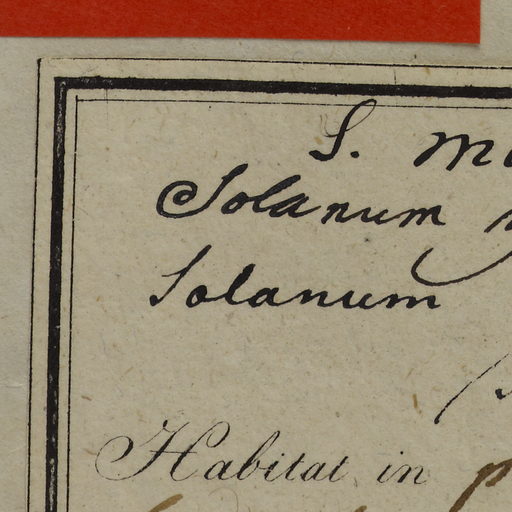 S.
Solanum
Solanum
Habitat in